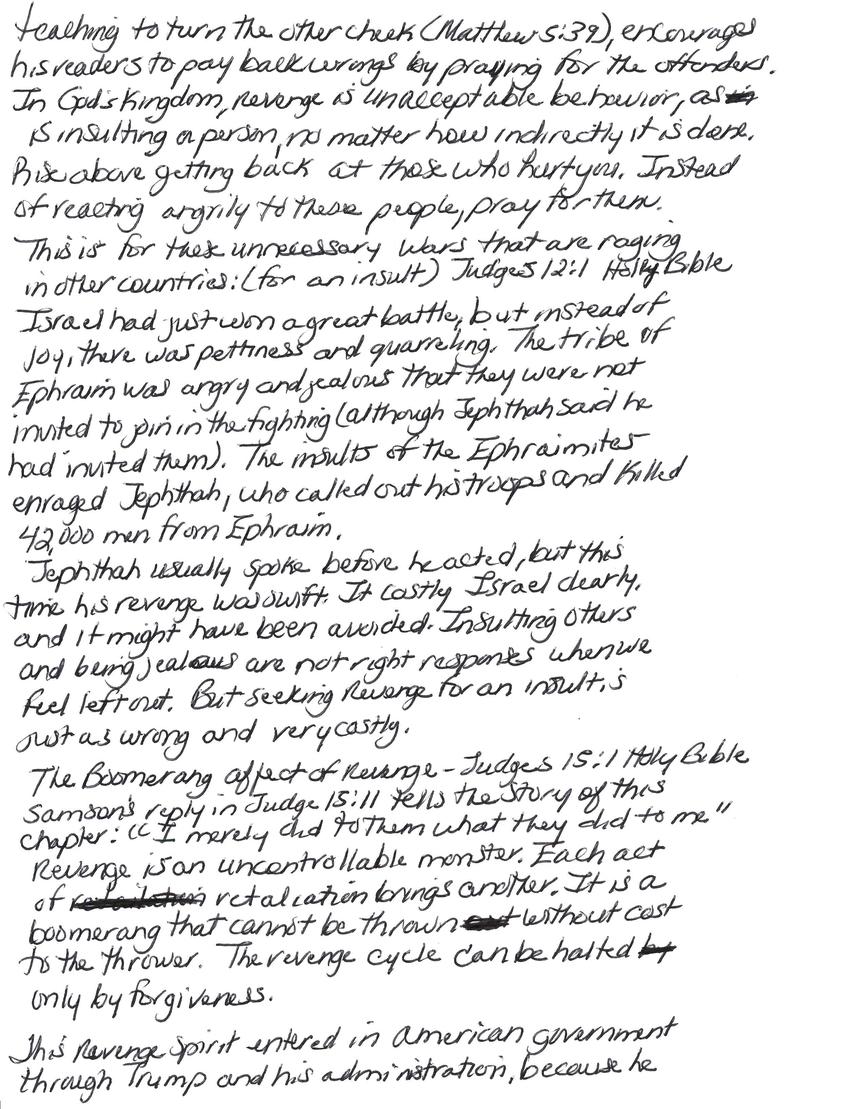 teaching to turn the other cheek (Matthew 5:39), encourages
his readers to pay back wrongs by praying for the offenders.
In God's Kingdom, revenge is unacceptable behavior, as
is insulting a person, no matter how indirectly it is done.
Rise above getting back at those who hurt you. Instead
of reacting angrily to these people, pray for them.
This is for these unnecessary wars that are raging
in other countries: (for an insult) Judges 12:1 Holy Bible
Israel had just won a great battle, but instead of
joy, there was pettiness and quarreling. The tribe of
Ephraim was angry and jealous that they were not
invited to join in the fighting (although Jephthah said he
had invited them). The insults of the Ephraimites
enraged Jephthah, who called out his troops and killed
42,000 men from Ephraim.
Jephthah usually spoke before he acted, but this
time his revenge was swift. It costly Israel dearly,
and it might have been avoided. Insulting others
and being jealous are not right responses when we
feel left out. But seeking Revenge for an insult, is
just as wrong and very costly.
The Boomerang affect of Revenge - Judges 15:1 Holy Bible
Samson's reply in Judge 15:11 tells the story of this
chapter: "I merely did to them what they did to me"
Revenge is an uncontrollable monster. Each act
of retaliation brings another. It is a
boomerang that cannot be thrown without cost
to the thrower. The revenge cycle can be halted
only by forgiveness.
This Revenge Spirit entered in American government
through Trump and his administration, because he